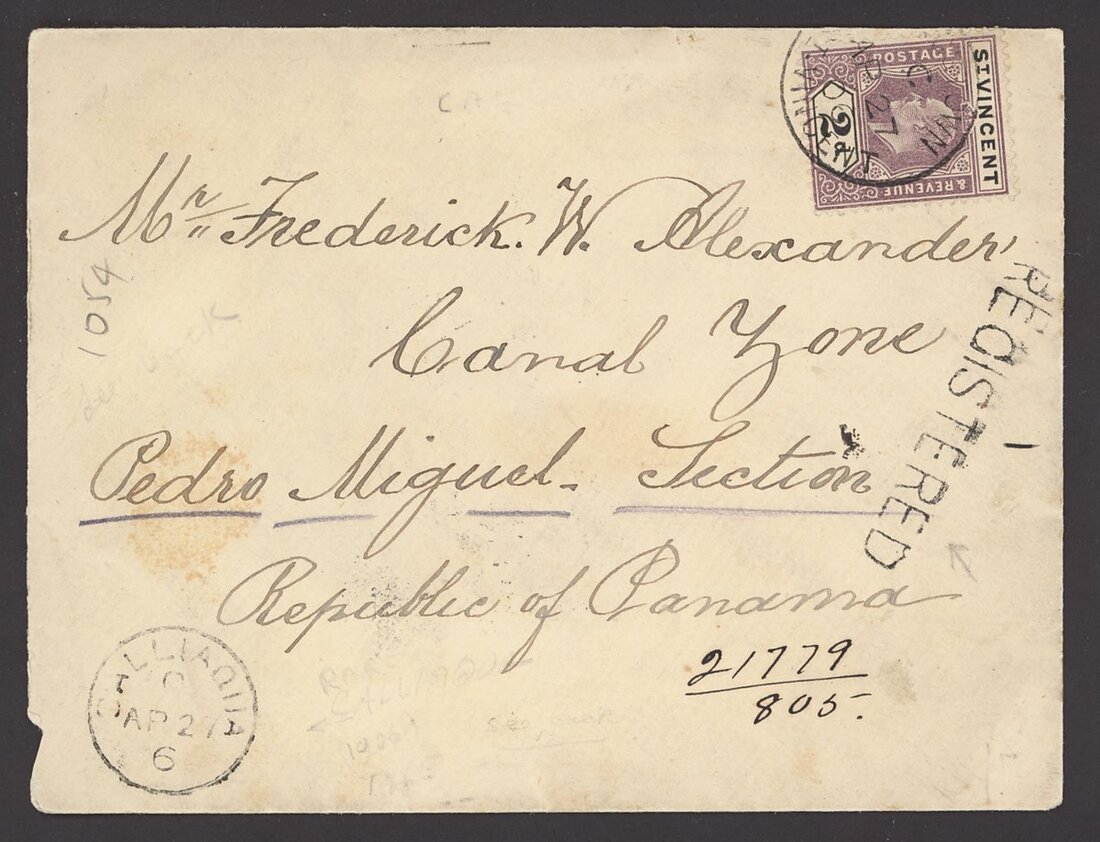 POSTAGE
ST VINCENT
2d
& REVENUE
AP 27
Mr Frederick. W. Alexander
Canal Zone
Pedro Miguel - Section
Republic of Panama
REGISTERED
1054
21779
805.
CALLIAQUA
AP 27
6